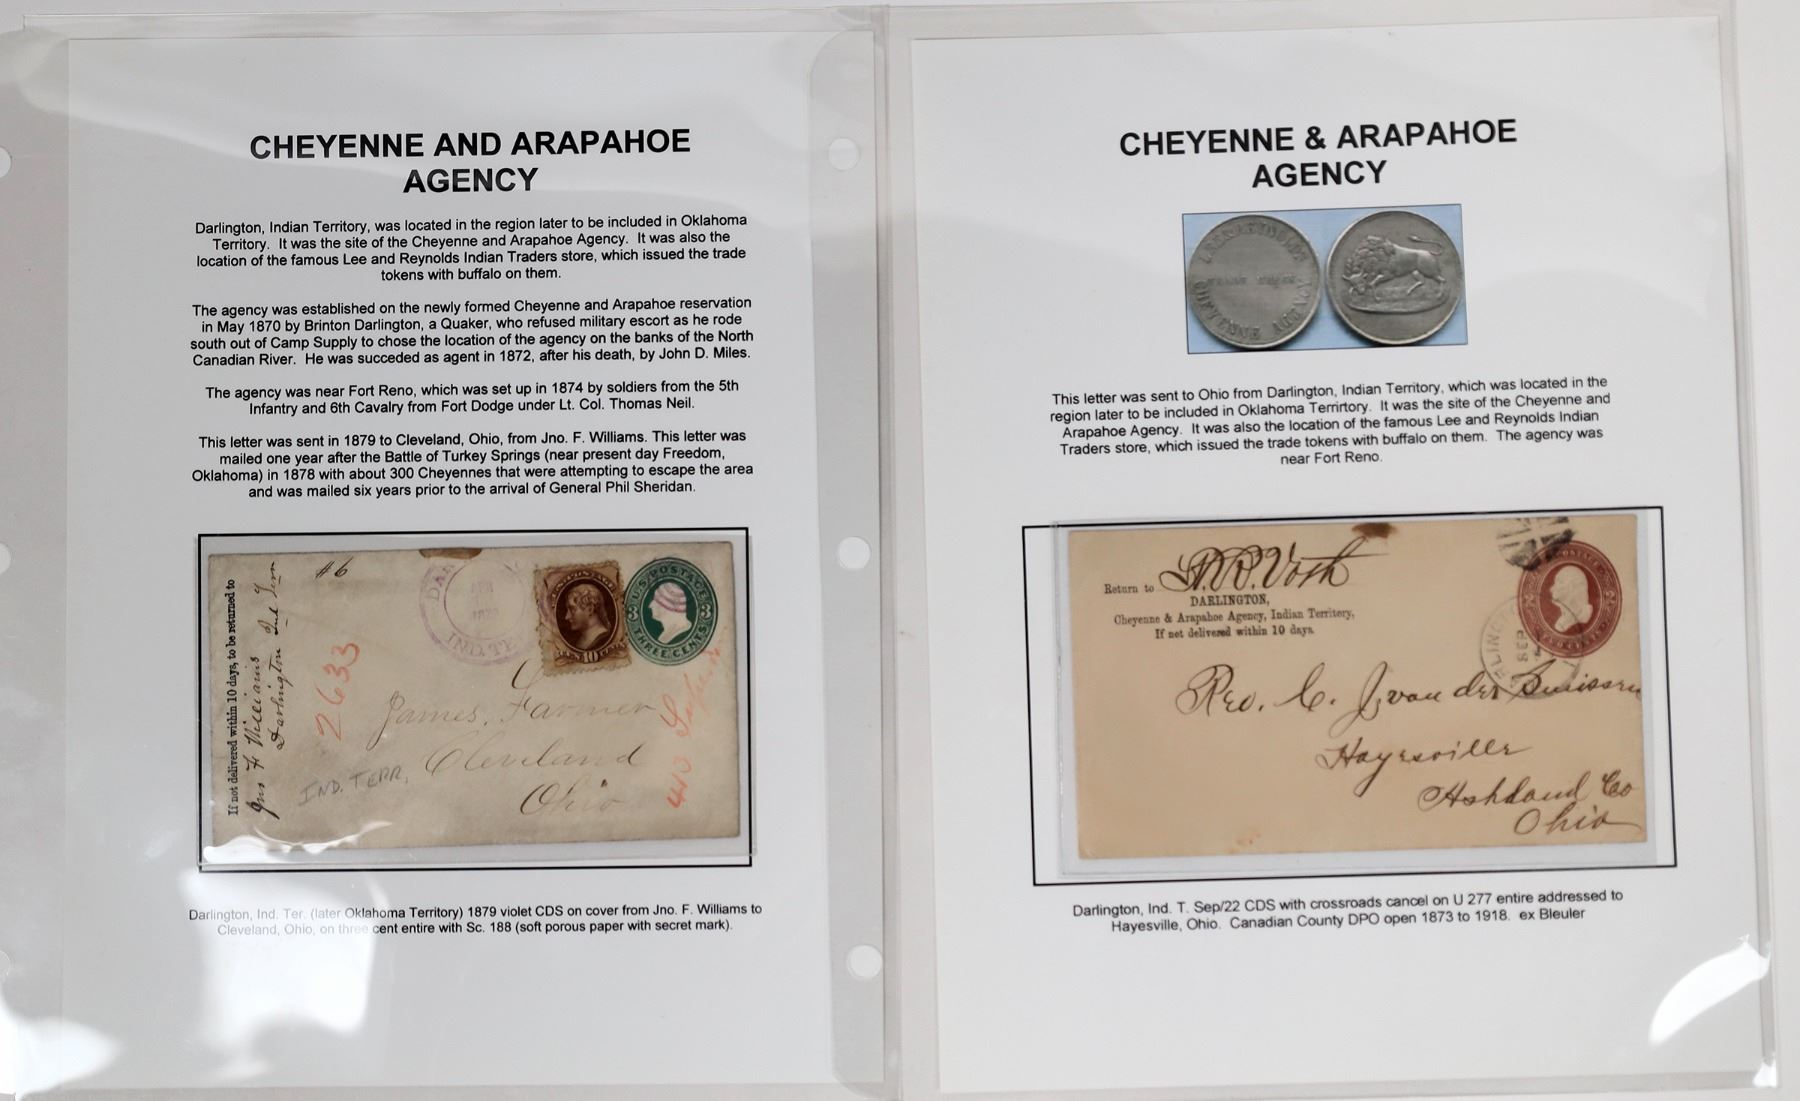 CHEYENNE AND ARAPAHOE
AGENCY
Darlington, Indian Territory, was located in the region later to be included in Oklahoma
Territory. It was the site of the Cheyenne and Arapahoe Agency. It was also the
location of the famous Lee and Reynolds Indian Traders store, which issued the trade
tokens with buffalo on them.
The agency was established on the newly formed Cheyenne and Arapahoe reservation
in May 1870 by Brinton Darlington, a Quaker, who refused military escort as he rode
south out of Camp Supply to chose the location of the agency on the banks of the North
Canadian River. He was succeded as agent in 1872, after his death, by John D. Miles.
The agency was near Fort Reno, which was set up in 1874 by soldiers from the 5th
Infantry and 6th Cavalry from Fort Dodge under Lt. Col. Thomas Neil.
This letter was sent in 1879 to Cleveland, Ohio, from Jno. F. Williams. This letter was
mailed one year after the Battle of Turkey Springs (near present day Freedom,
Oklahoma) in 1878 with about 300 Cheyennes that were attempting to escape the area
and was mailed six years prior to the arrival of General Phil Sheridan.
If not delivered within 10 days, to be returned to
Jno F Williams
Darlington Ind Terr
#6
2633
IND. TE
U.S. POSTAGE
THREE CENTS
10
James, Farmer
Cleveland
Ohio
IND. TERR.
Darlington, Ind. Ter. (later Oklahoma Territory) 1879 violet CDS on cover from Jno. F. Williams to
Cleveland, Ohio, on three cent entire with Sc. 188 (soft porous paper with secret mark).
CHEYENNE & ARAPAHOE
AGENCY
LEE & REYNOLDS
CHEYENNE AGENCY
This letter was sent to Ohio from Darlington, Indian Territory, which was located in the
region later to be included in Oklahoma Terrirtory. It was the site of the Cheyenne and
Arapahoe Agency. It was also the location of the famous Lee and Reynolds Indian
Traders store, which issued the trade tokens with buffalo on them. The agency was
near Fort Reno.
Return to H. R. Voth
DARLINGTON,
Cheyenne & Arapahoe Agency, Indian Territory,
If not delivered within 10 days
SEP
Rev. C. J. van der Smissen
Hayesville
Ashland Co
Ohio
Darlington, Ind. T. Sep/22 CDS with crossroads cancel on U 277 entire addressed to
Hayesville, Ohio. Canadian County DPO open 1873 to 1918. ex Bleuler